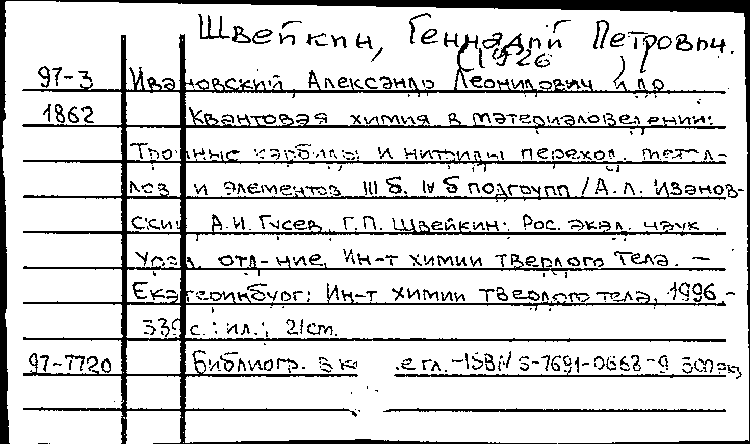 Швейкин, Геннадий Петрович.
(1926 )
97-3 Ивановский, Александр Леонидович и др.
1862 Квантовая химия в материаловедении:
Тройные карбиды и нитриды переход. метал-
лов и элементов III б, IV б подгрупп / А.Л. Иванов-
ский, А.И. Гусев, Г.П. Швейкин; Рос. акад. наук
Урал. отд-ние, Ин-т химии твердого тела. –
Екатеринбург: Ин-т химии твердого тела, 1996.-
339 с. : ил.; 21 cm.
97-7720 Библиогр. в к е гл. -ISBN 5-7691-0668-9, 300 экз,